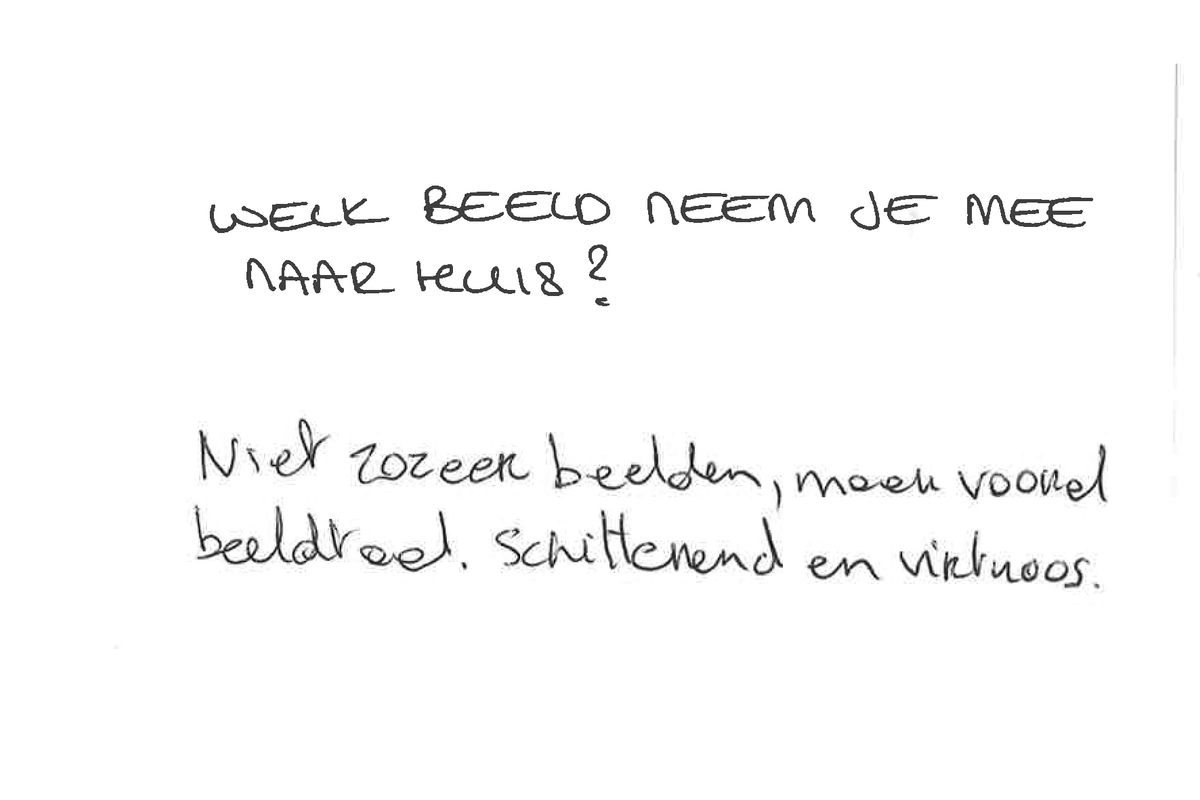 WELK BEELD NEEM JE MEE
NAAR HUIS?
Niet zozeer beelden, maar vooral
beeldtaal. Schitterend en virtuoos.